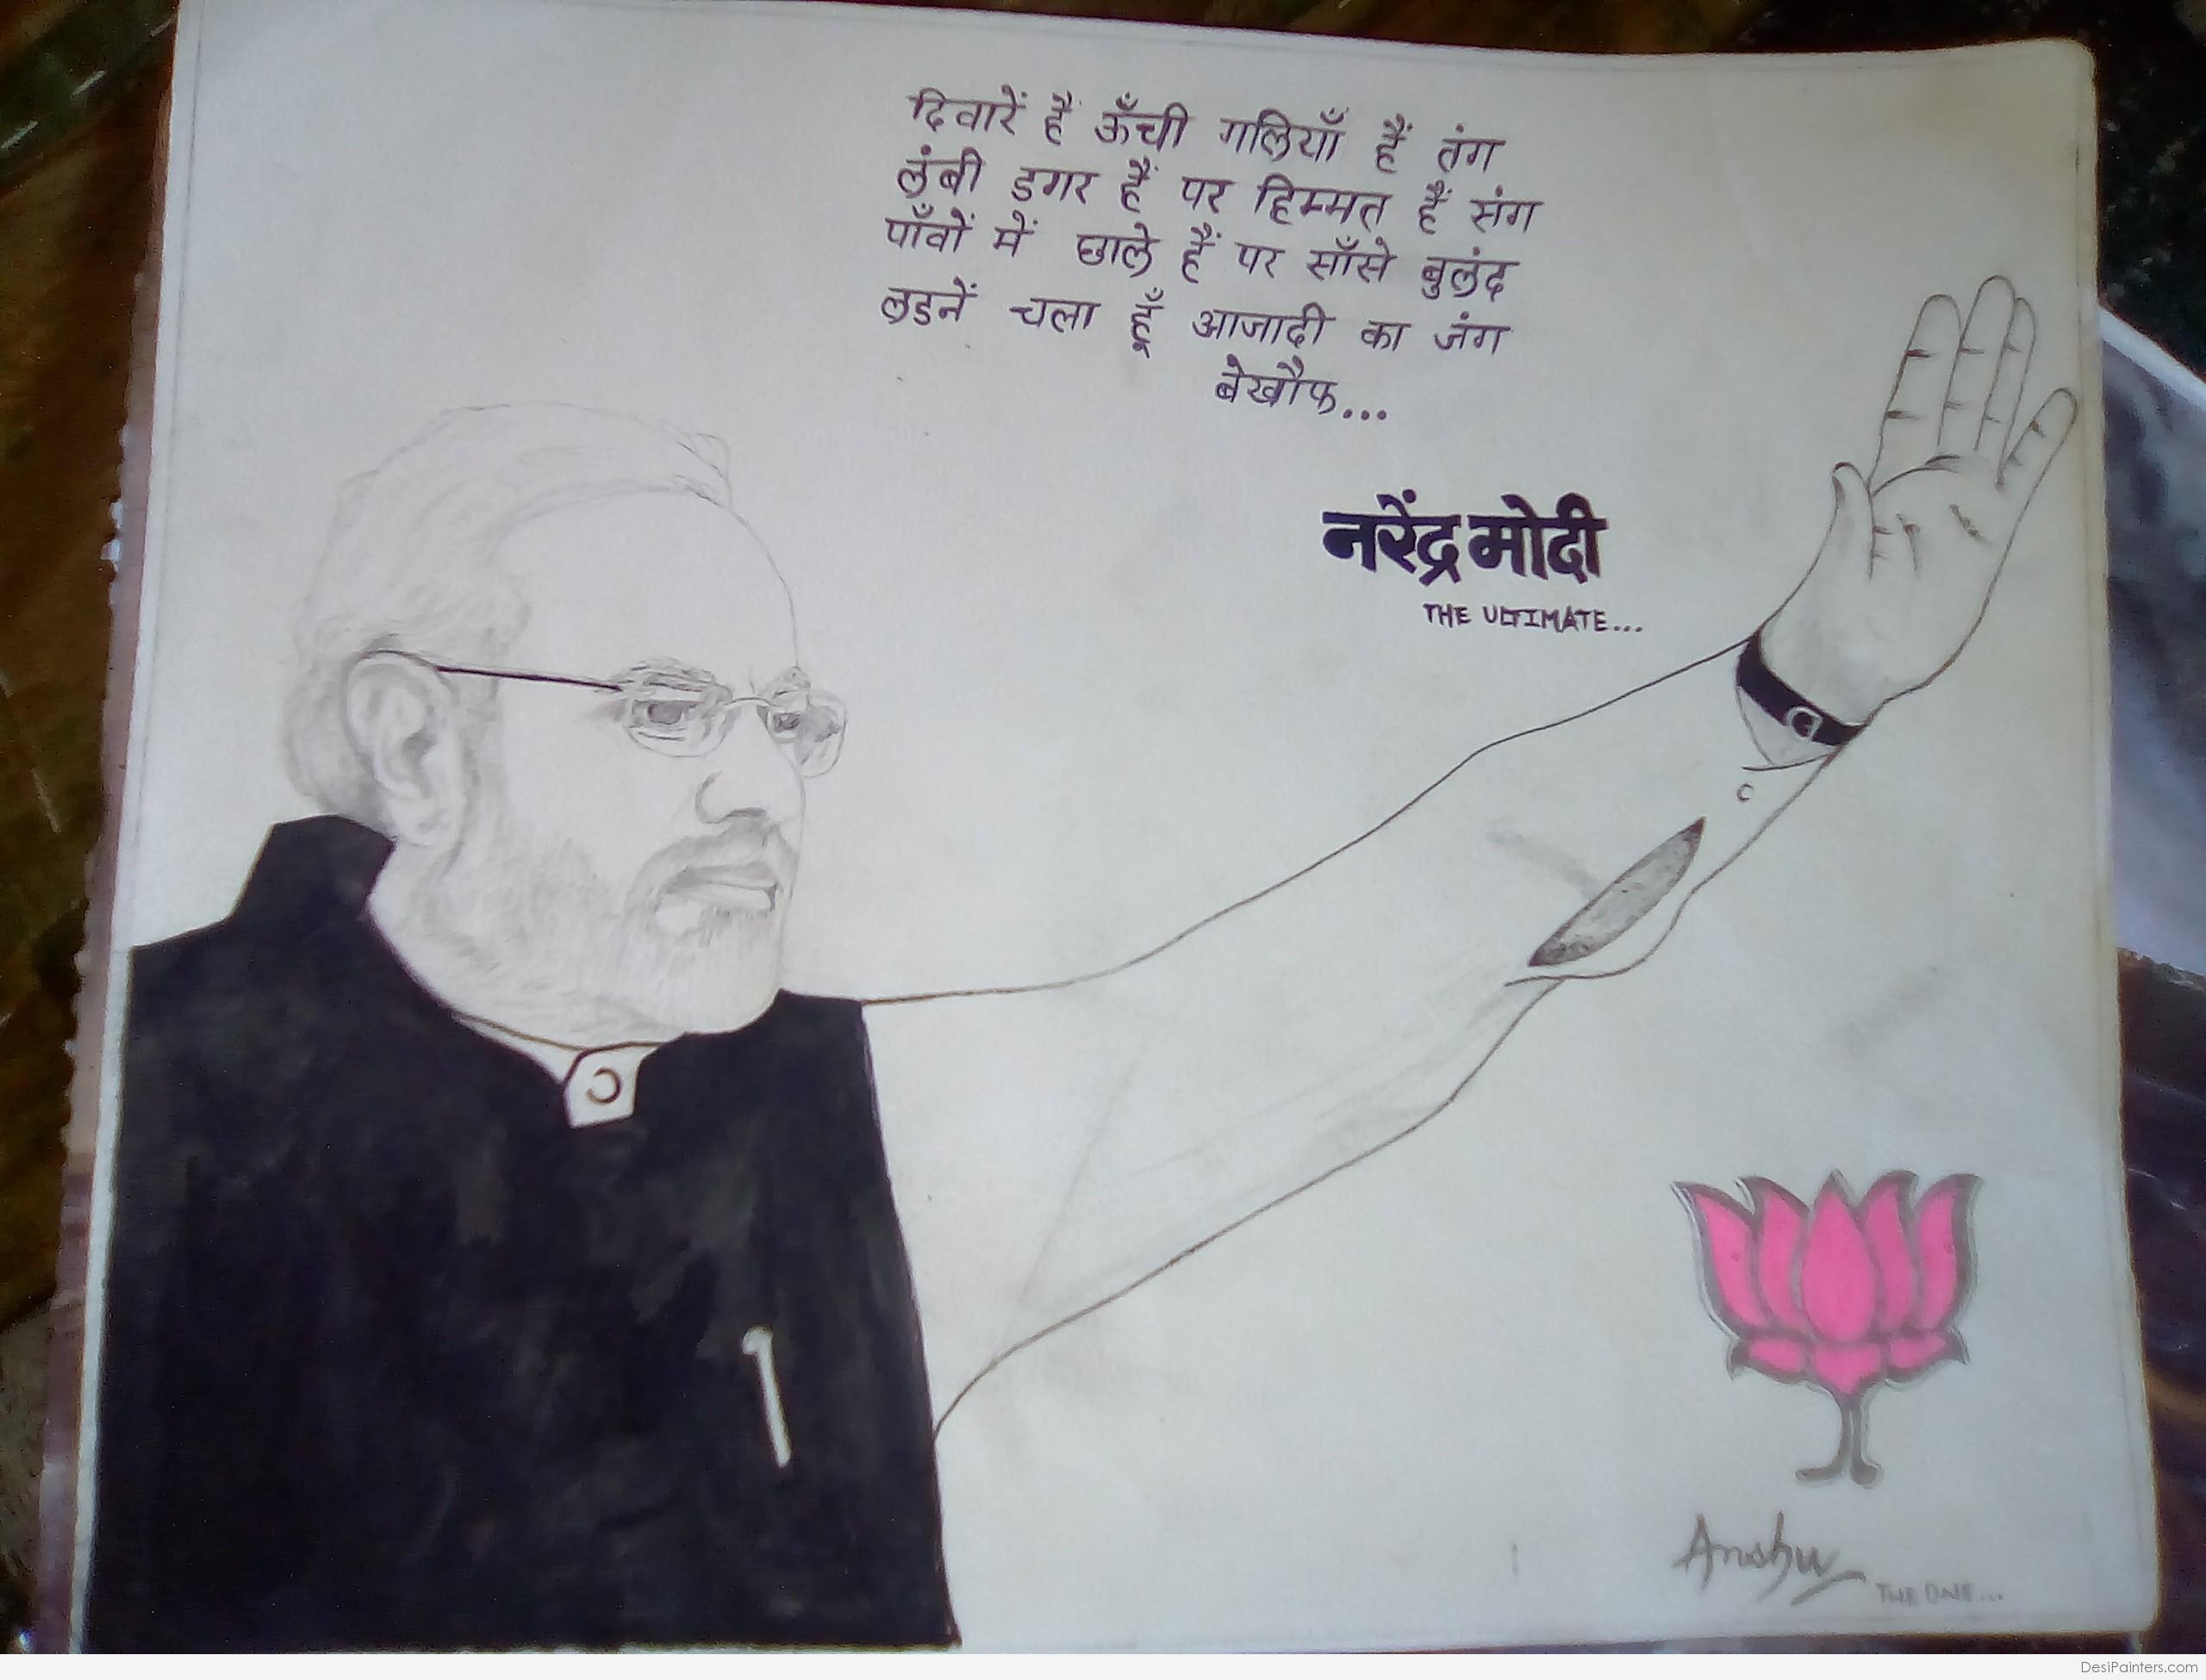 दिवारें हैं ऊँची गलियाँ हैं तंग
लंबी डगर हैं पर हिम्मत हैं संग
पाँवों में छाले हैं पर साँसे बुलंद
लडनें चला हूँ आजादी का जंग
बेखौफ...
नरेंद्र मोदी
THE ULTIMATE...
Anshu
THE ONE...
DesiPainters.com